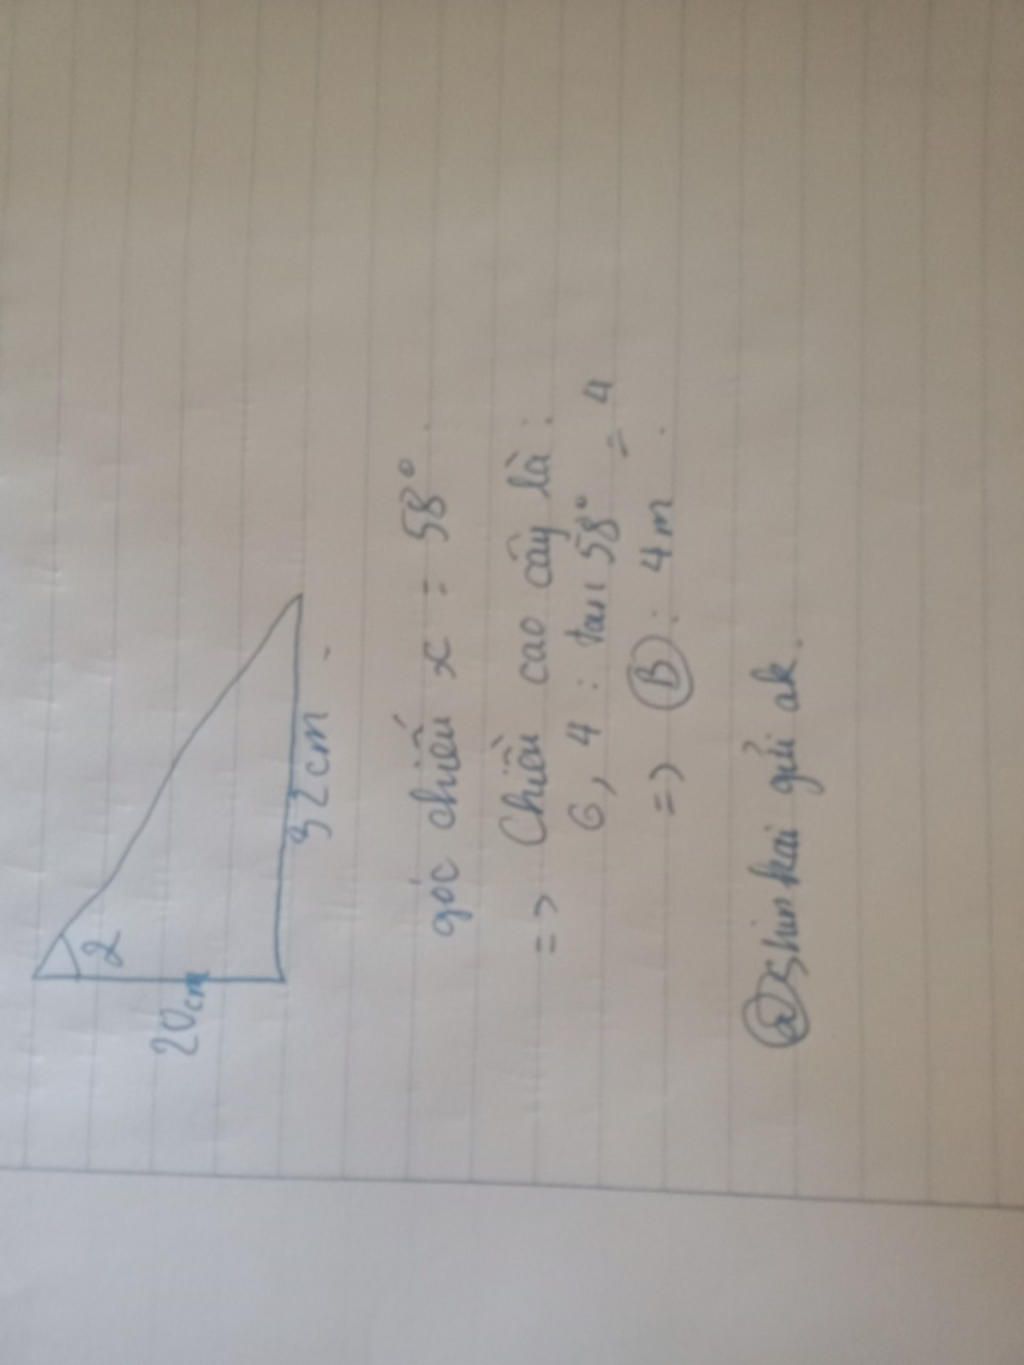 2
20cm
32cm
góc chiếu x = 58°.
=> Chiều cao cây là:
6,4 : tan 58° = 4
=> B: 4m.
@Shinkai gửi ak.